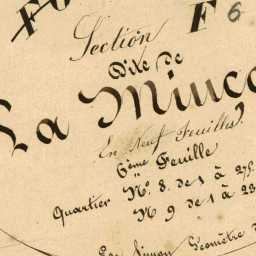 Section F 6
Dite de
La Minco
En Neuf Feuilles.
6ème Feuille
Quartier Nº. 8. de 1 à 275
Nº 9 de 1 à 23
Géomètre